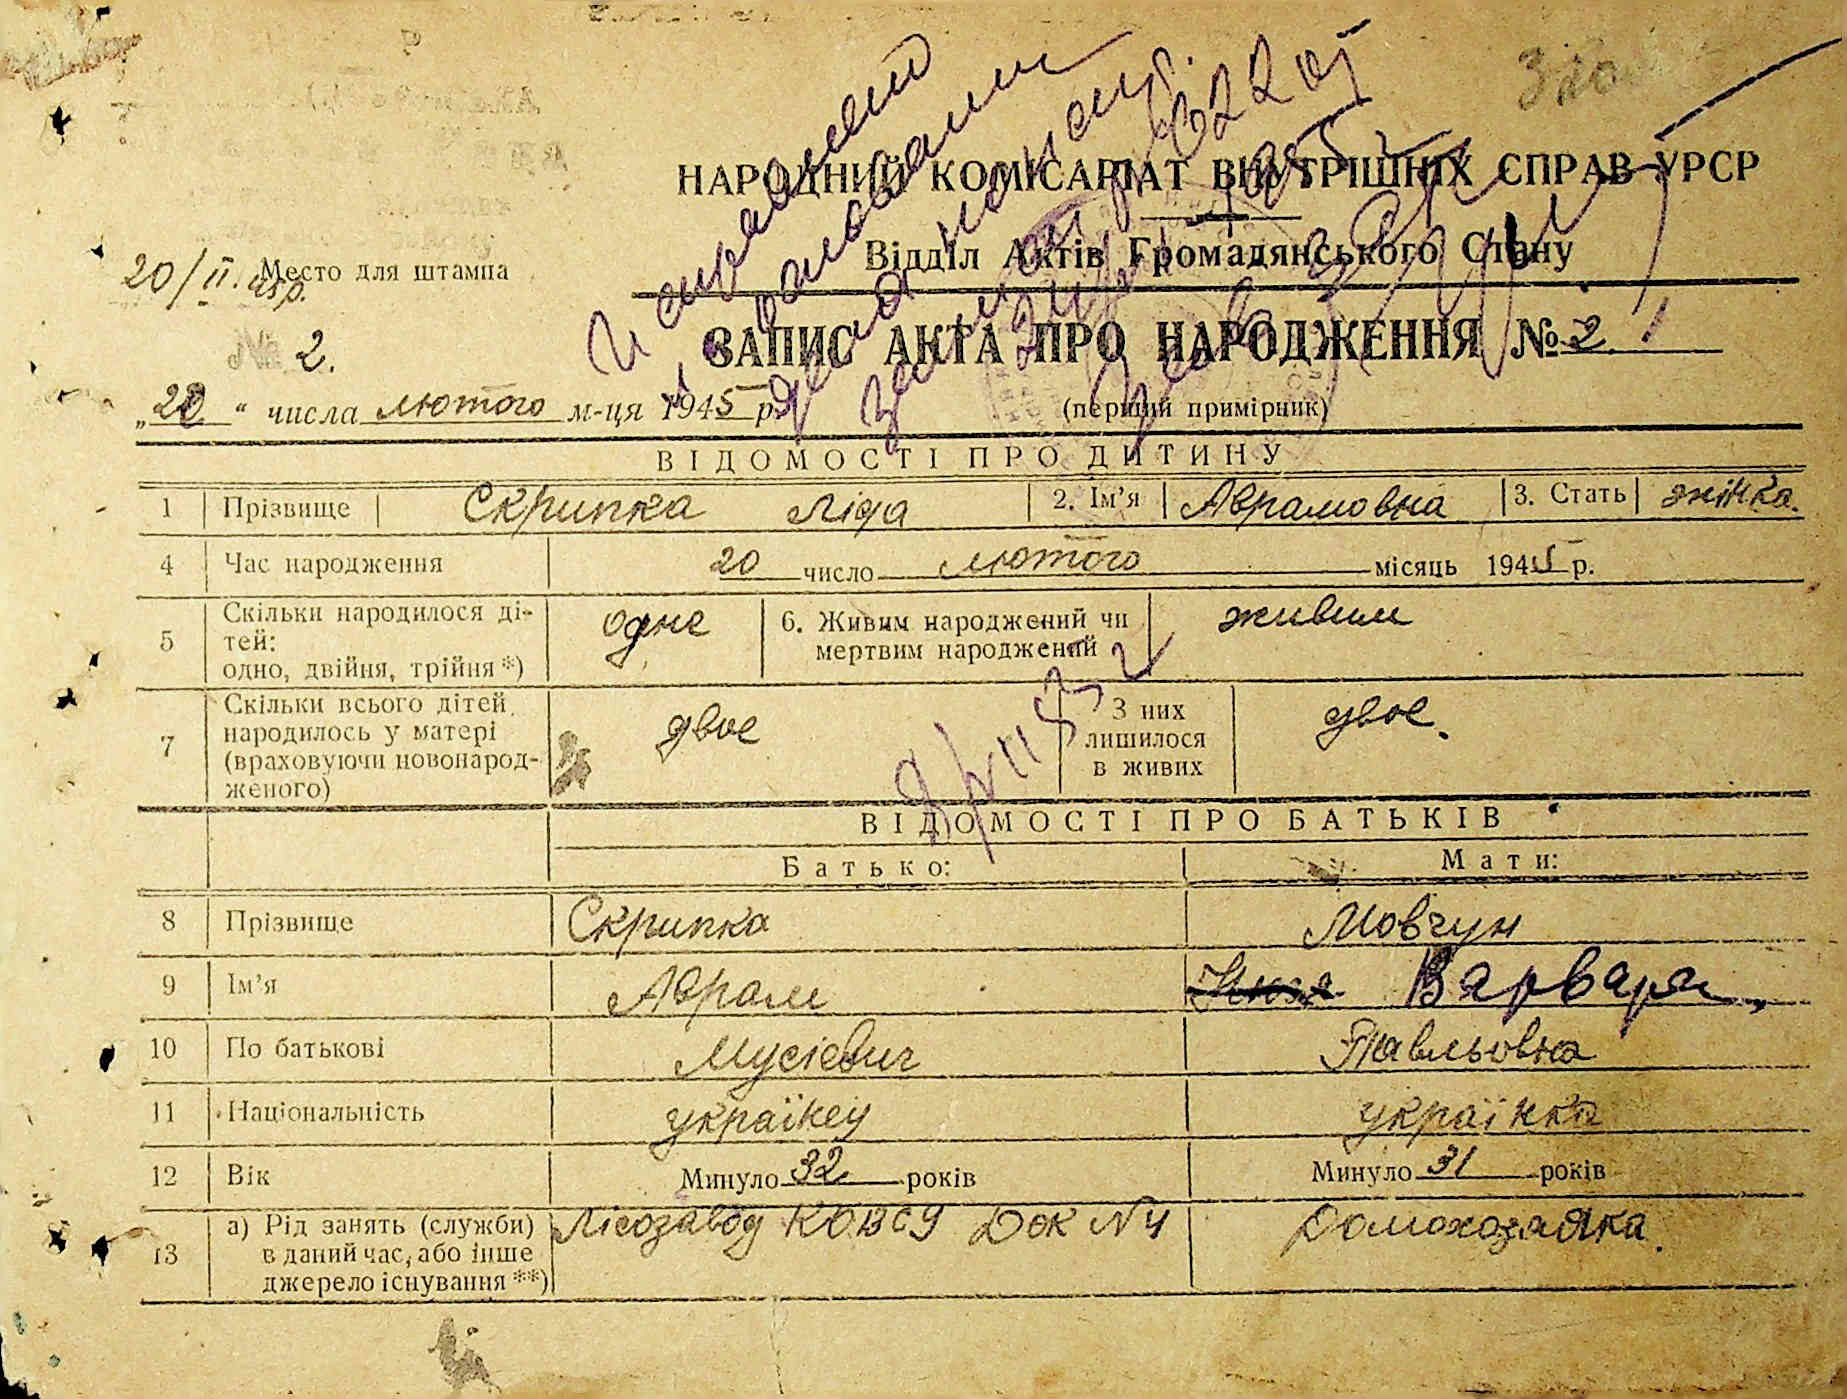 НАРОДНИЙ КОМІСАРІАТ ВНУТРІШНІХ СПРАВ УРСР
Відділ Актів Громадянського Стану
20/II.45р. Место для штампа
2.
ЗАПИС АКТА ПРО НАРОДЖЕННЯ № 2.
„20" числа лютого м-ця 1945 р.
(перший примірник)
ВІДОМОСТІ ПРО ДИТИНУ
1 Прізвище Скрипка Ліда 2. Ім'я Аврамовна 3. Стать жінка.
4 Час народження 20 число лютого місяць 1945 р.
5 Скільки народилося ді-
тей:
одно, двійня, трійня*) одне 6. Живим народжений чи
мертвим народжений живим
7 Скільки всього дітей
народилось у матері
(враховуючи новонарод-
женого) двоє З них
лишилося
в живих двоє.
ВІДОМОСТІ ПРО БАТЬКІВ
Батько: Мати:
8 Прізвище Скрипка Мовчун
9 Ім'я Аврам Варвара
10 По батькові Мусієвич Павльовна
11 Національність українец українка
12 Вік Минуло 32 років Минуло 31 років
13 а) Рід занять (служби)
в даний час, або інше
джерело існування**) Лісозавод КОВСУ Док N4 Домохозаяка.